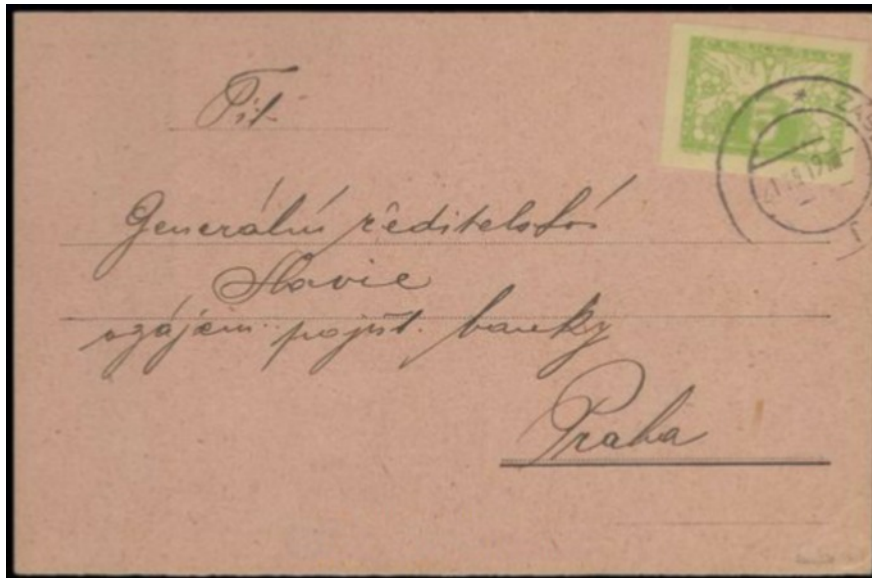 Tit.
Generální ředitelství
Slavie
vzájem. pojišt. banky
Praha